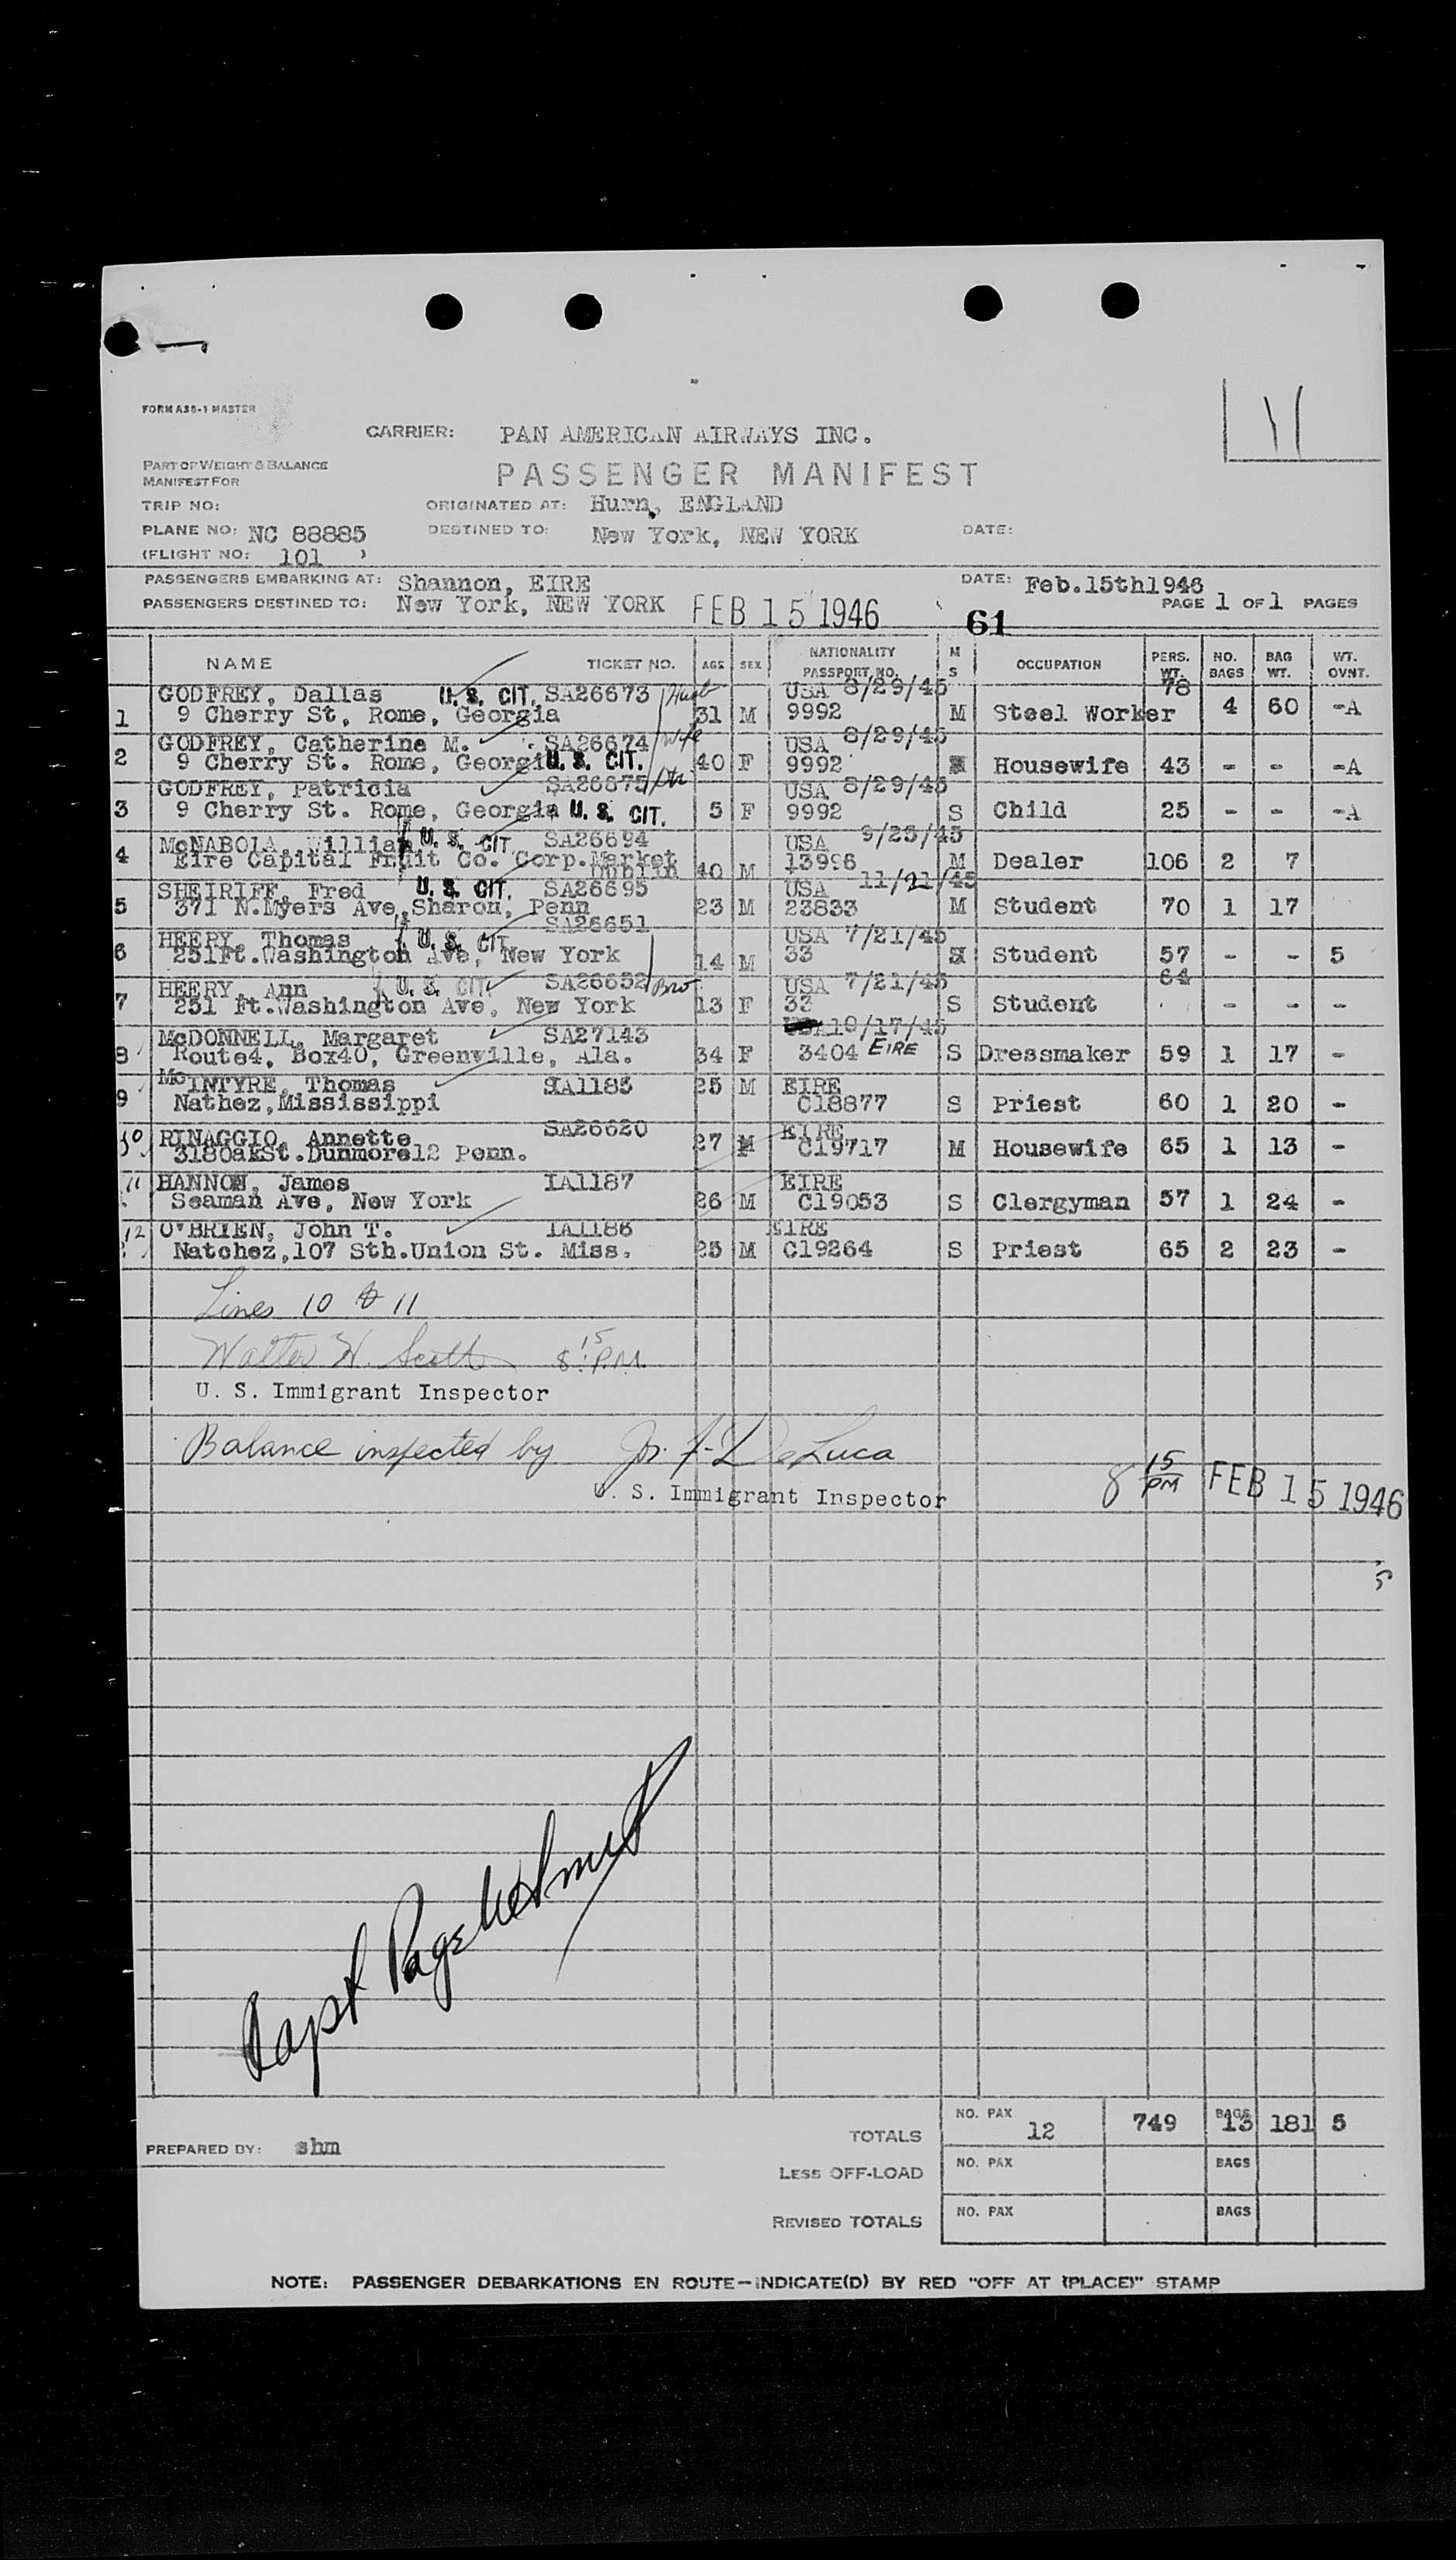 11
FORM A35-1 MASTER
CARRIER: PAN AMERICAN AIRWAYS INC.
PART OF WEIGHT & BALANCE
MANIFEST FOR
PASSENGER MANIFEST
TRIP NO: ORIGINATED AT: Hurn, ENGLAND
PLANE NO: NC 88885 DESTINED TO: New York, NEW YORK DATE:
(FLIGHT NO: 101 )
PASSENGERS EMBARKING AT: Shannon, EIRE DATE: Feb.15th1946
PASSENGERS DESTINED TO: New York, NEW YORK FEB 15 1946 PAGE 1 OF 1 PAGES
61
NAME TICKET NO. AGE SEX NATIONALITY PASSPORT NO. M S OCCUPATION PERS. WT. NO. BAGS BAG WT. WT. OVNT.
GODFREY, Dallas U. S. CIT. SA26673 Husb USA 8/29/45 78
1 9 Cherry St, Rome, Georgia 31 M 9992 M Steel Worker 4 60 -A
GODFREY, Catherine M. SA26674 Wife USA 8/29/45
2 9 Cherry St. Rome, Georgia U. S. CIT. 40 F 9992 Housewife 43 - - -A
GODFREY, Patricia SA26675 USA 8/29/45
3 9 Cherry St. Rome, Georgia U. S. CIT. 5 F 9992 S Child 25 - - -A
McNABOLA, William U. S. CIT. SA26694 USA 9/25/45
4 Eire Capital Fruit Co. Corp.Market Dublin 40 M 13996 M Dealer 106 2 7
SHEIRIFF, Fred U. S. CIT. SA26695 USA 11/21/45
5 371 N.Myers Ave,Sharon, Penn 23 M 23833 M Student 70 1 17
HEERY, Thomas U. S. CIT. SA26651 USA 7/21/45
6 251Ft.Washington Ave, New York 14 M 33 Student 57 - - 5
HEERY, Ann U. S. CIT. SA26652 Bro USA 7/21/45 64
7 251 Ft.Washington Ave, New York 13 F 33 S Student - - -
McDONNELL, Margaret SA27143 10/17/45
8 Route4, Box40, Greenville, Ala. 34 F 3404 EIRE S Dressmaker 59 1 17 -
McINTYRE, Thomas IA1185 25 M EIRE
9 Nathez,Mississippi C18877 S Priest 60 1 20 -
10 RINAGGIO, Annette SA26620 EIRE
318OakSt.Dunmore12 Penn. 27 C19717 M Housewife 65 1 13 -
11 HANNON, James IA1187 EIRE
Seaman Ave, New York 26 M C19053 S Clergyman 57 1 24 -
12 O'BRIEN, John T. IA1186 EIRE
Natchez,107 Sth.Union St. Miss. 25 M C19264 S Priest 65 2 23 -
Lines 10 & 11
Walter W. Scott 8:15 P.M.
U. S. Immigrant Inspector
Balance inspected by Jos. F. DeLuca
U. S. Immigrant Inspector 8 15 PM FEB 15 1946
5
Capt Page
NO. PAX 12 749 BAGS 13 181 5
TOTALS
PREPARED BY: shm
LESS OFF-LOAD NO. PAX BAGS
REVISED TOTALS NO. PAX BAGS
NOTE: PASSENGER DEBARKATIONS EN ROUTE—INDICATE(D) BY RED "OFF AT (PLACE)" STAMP